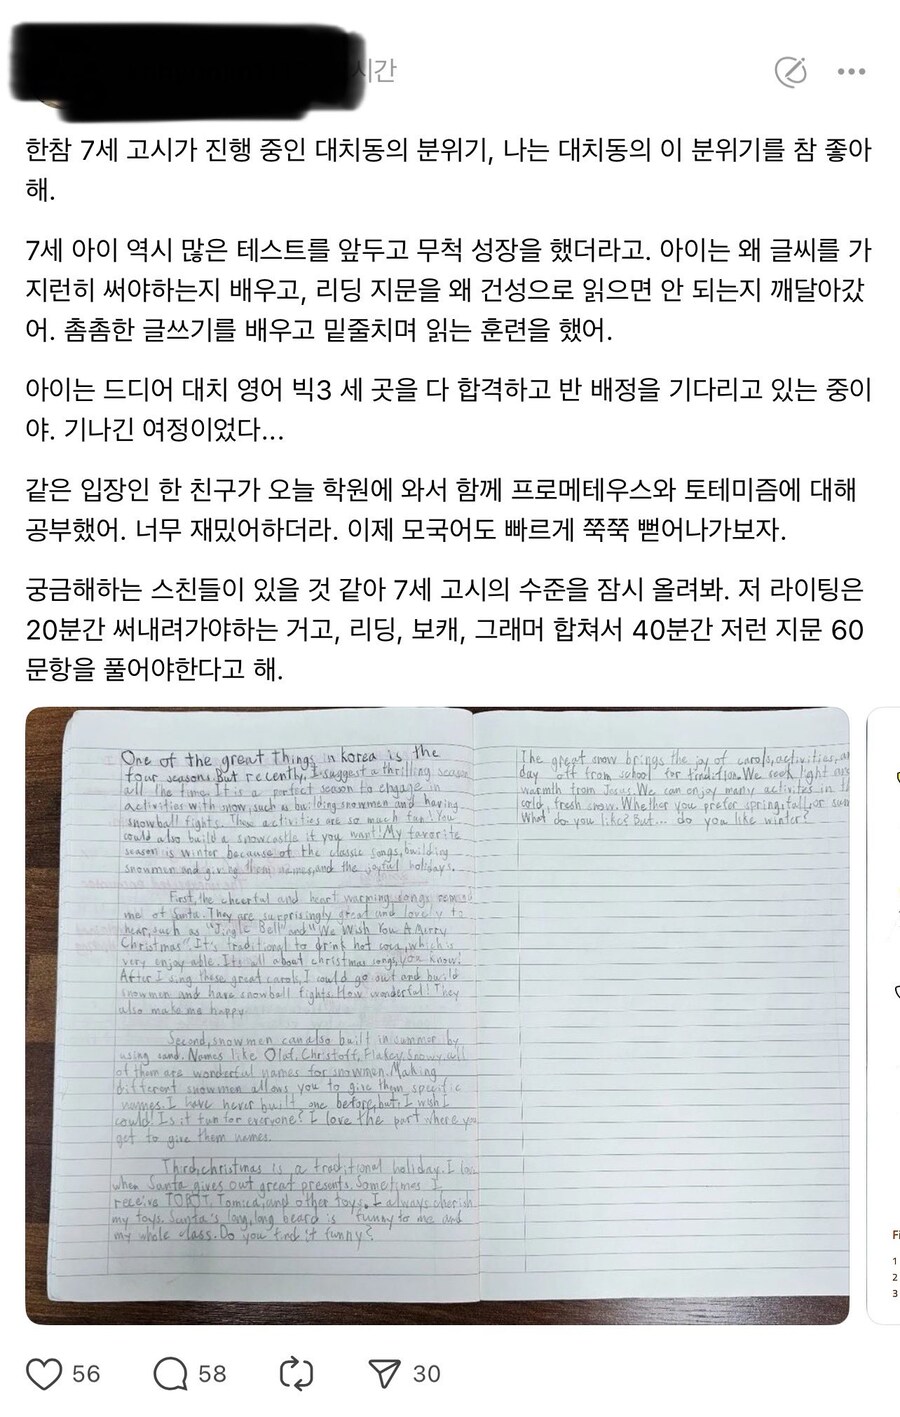 시간
한참 7세 고시가 진행 중인 대치동의 분위기, 나는 대치동의 이 분위기를 참 좋아
해.
7세 아이 역시 많은 테스트를 앞두고 무척 성장을 했더라고. 아이는 왜 글씨를 가
지런히 써야하는지 배우고, 리딩 지문을 왜 건성으로 읽으면 안 되는지 깨달아갔
어. 촘촘한 글쓰기를 배우고 밑줄치며 읽는 훈련을 했어.
아이는 드디어 대치 영어 빅3 세 곳을 다 합격하고 반 배정을 기다리고 있는 중이
야. 기나긴 여정이었다...
같은 입장인 한 친구가 오늘 학원에 와서 함께 프로메테우스와 토테미즘에 대해
공부했어. 너무 재밌어하더라. 이제 모국어도 빠르게 쭉쭉 뻗어나가보자.
궁금해하는 스친들이 있을 것 같아 7세 고시의 수준을 잠시 올려봐. 저 라이팅은
20분간 써내려가야하는 거고, 리딩, 보캐, 그래머 합쳐서 40분간 저런 지문 60
문항을 풀어야한다고 해.
One of the great things in korea is the
four seasons. But recently, I suggest a thrilling season
all the time. It is a perfect season to engage in
activities with snow, such as building snowmen and having
snowball fights. These activities are so much fun! You
could also build a snowcastle if you want! My favorite
season is winter because of the classic songs, building
snowmen and giving them names, and the joyful holidays.
First, the cheerful and heart warming songs remind
me of Santa. They are surprisingly great and lovely to
hear, such as "Jingle Bell" and "We Wish You A Merry
Christmas". It's traditional to drink hot coca, which is
very enjoy able. Its all about christmas songs, you know!
After I sing these great carols, I could go out and build
snowmen and have snowball fights. How wonderful! They
also make me happy.
Second, snowmen can also built in summer by
using sand. Names like Olaf, Christoff, Flakey, Snowy, all
of them are wonderful names for snowmen. Making
different snowmen allows you to give them specific
names. I have never built one before, but I wish I
could! Is it fun for everyone? I love the part where you
get to give them names.
Third, christmas is a traditional holiday. I love
when Santa gives out great presents. Sometimes I
receive TOBOT, Tomica, and other toys. I always cherish
my toys. Santa's long, long beard is funny to me and
my whole class. Do you find it funny?
The great snow brings the joy of carols, activities, a
day off from school for tradition. We seek light and
warmth from Jesus. We can enjoy many activites in th
cold, fresh snow. Whether you prefer spring, fall, or sum
What do you like? But... do you like winter?
Fi
1
2
3
56
58
30